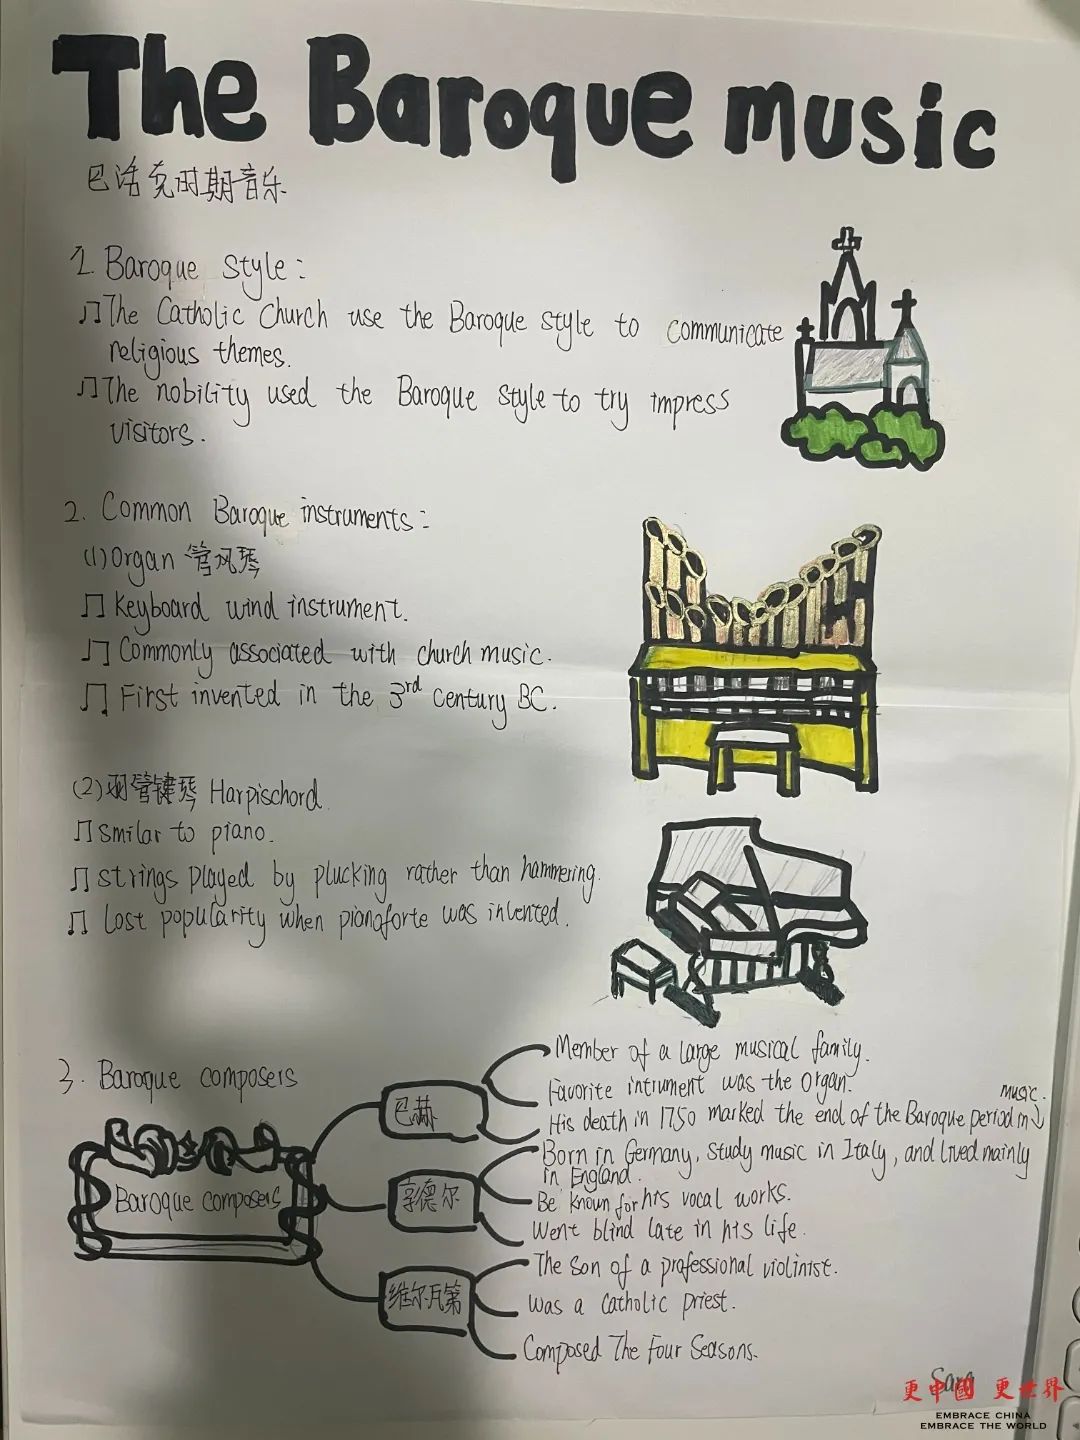 The Baroque music
巴洛克时期音乐
1. Baroque style:
The Catholic Church use the Baroque style to communicate
religious themes.
The nobility used the Baroque style to try impress
visitors.
2. Common Baroque instruments:
(1) Organ 管风琴
Keyboard wind instrument.
Commonly associated with church music.
First invented in the 3rd century BC.
(2) 羽管键琴 Harpischord
Smilar to piano.
strings played by plucking rather than hammering.
Lost popularity when pianoforte was invented.
3. Baroque composers
Baroque composers
巴赫
Member of a large musical family.
Favorite intrument was the organ.
His death in 1750 marked the end of the Baroque period in
music.
亨德尔
Born in Germany, study music in Italy, and lived mainly
in England.
Be known for his vocal works.
Went blind late in his life.
维尔瓦第
The son of a professional violinist.
Was a Catholic priest.
Composed The Four Seasons.
Sara
更中國 更世界
EMBRACE CHINA
EMBRACE THE WORLD